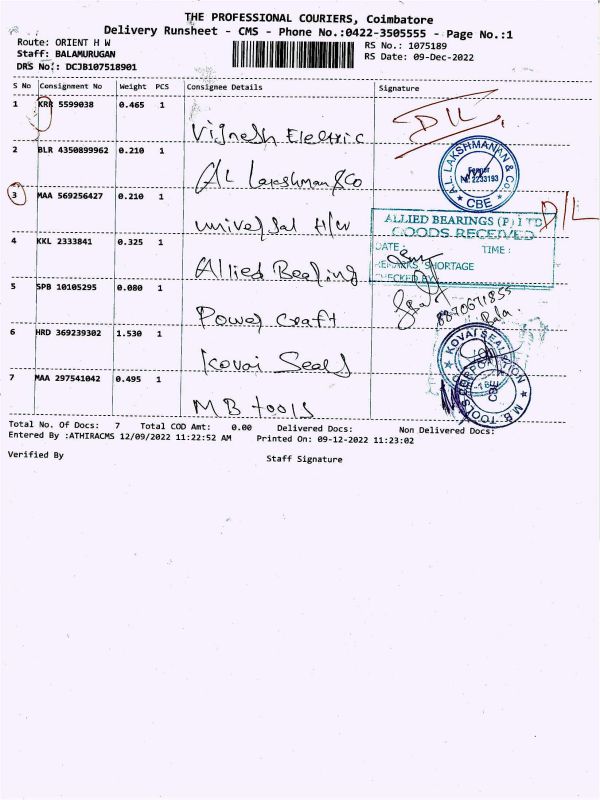 THE PROFESSIONAL COURIERS, Coimbatore
Delivery Runsheet - CMS - Phone No.:0422-3505555 - Page No.:1
Route: ORIENT H W
RS No.: 1075189
Staff: BALAMURUGAN
RS Date: 09-Dec-2022
DRS No.: DCJB107518901
S No Consignment No Weight PCS Consignee Details Signature
1 KRK 5599038 0.465 1
Vignesh Electric
D/L
2 BLR 4350899962 0.210 1
AL Lakshman & Co
A.L. LAKSHMANAN & Co.
CBE
3 MAA 569256427 0.210 1
universal H/W
D/L
4 KKL 2333841 0.325 1
Allied Bearing
ALLIED BEARINGS (P) LTD
GOODS RECEIVED
DATE : TIME :
REMARKS SHORTAGE
CHECKED BY
5 SPB 10105295 0.080 1
Power craft
8870671855
Bala.
6 HRD 369239302 1.530 1
Kovai Seals
KOVAI SEAL
7 MAA 297541042 0.495 1
M B tools
M.B. TOOLS CORPORATION
CBE
Total No. Of Docs: 7 Total COD Amt: 0.00 Delivered Docs: Non Delivered Docs:
Entered By :ATHIRACMS 12/09/2022 11:22:52 AM Printed On: 09-12-2022 11:23:02
Verified By Staff Signature